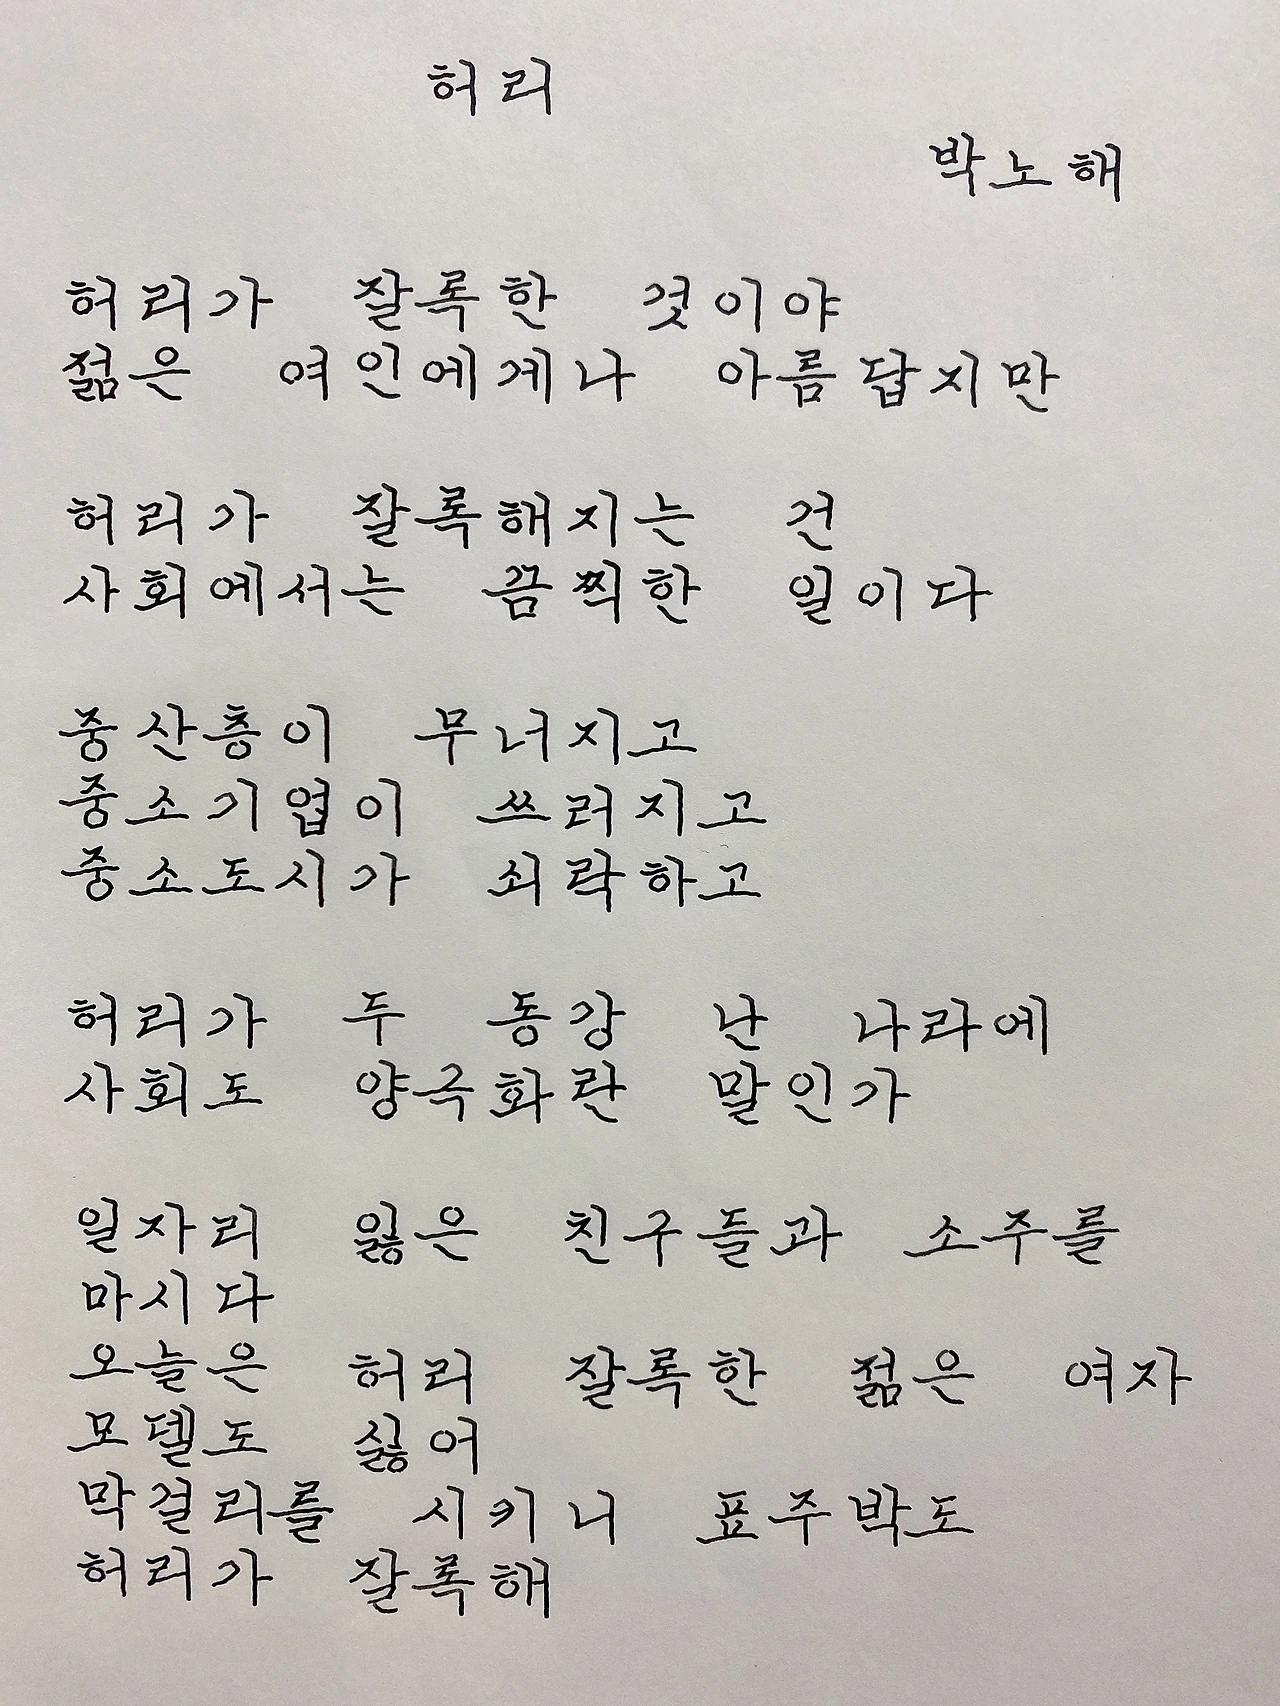 허리
박노해
허리가 잘록한 것이야
젊은 여인에게나 아름답지만
허리가 잘록해지는 건
사회에서는 끔찍한 일이다
중산층이 무너지고
중소기업이 쓰러지고
중소도시가 쇠락하고
허리가 두 동강 난 나라에
사회도 양극화란 말인가
일자리 잃은 친구들과 소주를
마시다
오늘은 허리 잘록한 젊은 여자
모델도 싫어
막걸리를 시키니 표주박도
허리가 잘록해